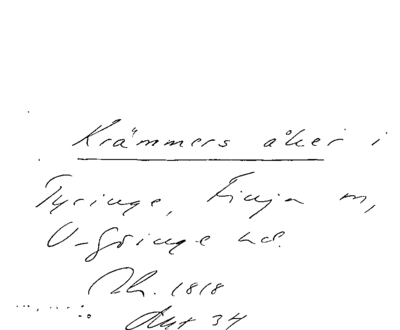 Krämmers åker i
Tyringe, Finja m,
V-Göinge hd.
Rh. 1818
Akt 34